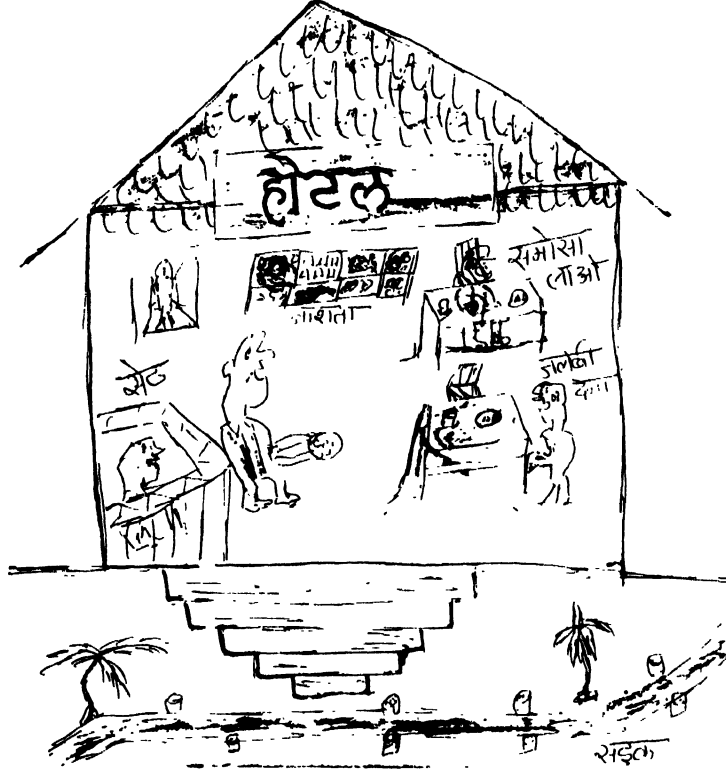 होटल
समोसा
लाओ
नाशता
जलेबी
देना
सेठ
सड़क